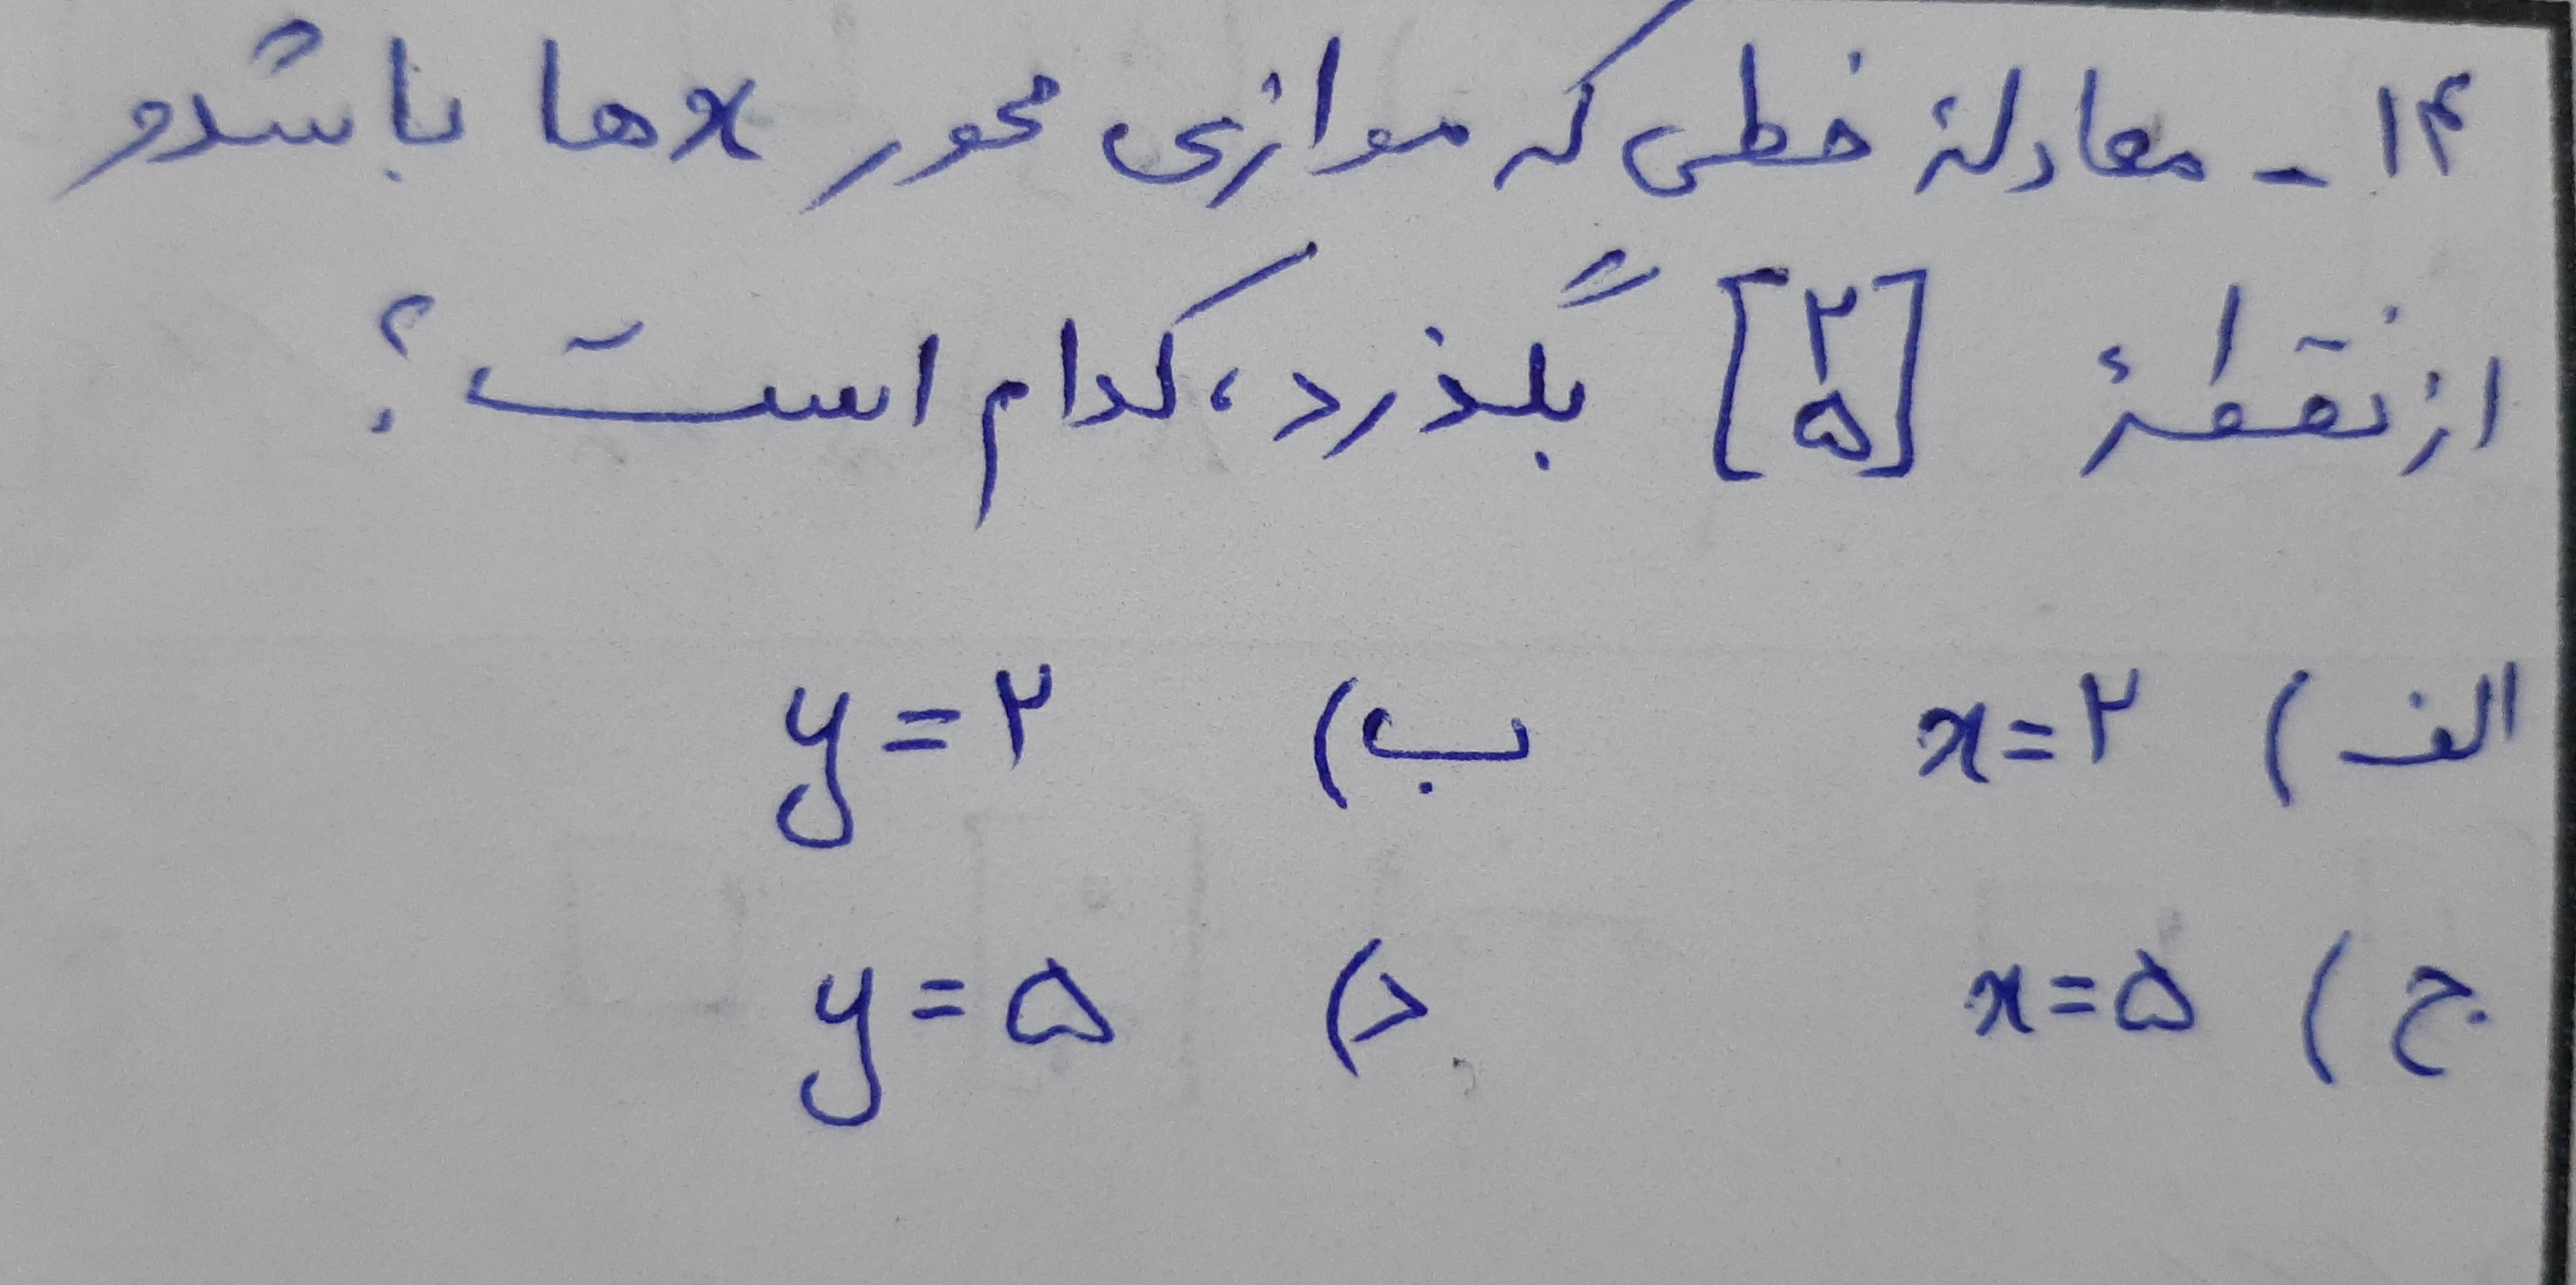 ۱۴- معادلهٔ خطی که موازی محور xها باشد و
از نقطهٔ [۲ ۵] بگذرد، کدام است؟
الف) x=۲ ب) y=۲
ج) x=۵ د) y=۵